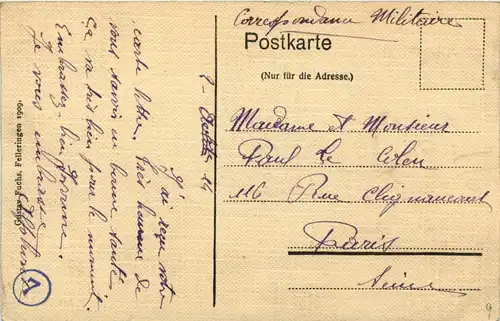 Correspondance Militaire
Postkarte
(Nur für die Adresse.)
Madame et Monsieur
Paul le
116 Rue Clignancourt
Paris
Seine
2 - Octobre 14
J'ai reçu votre
carte lettre. Très heureux de
vous savoir en bonne santé
Ça va très bien pour le moment.
Embrassez bien
Je vous embrasse
Fuchs, Felleringen 1909.